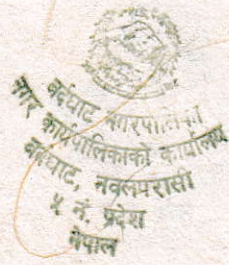 बर्दघाट नगरपालिका
नगर कार्यपालिकाको कार्यालय
बर्दघाट, नवलपरासी
५ नं. प्रदेश
नेपाल